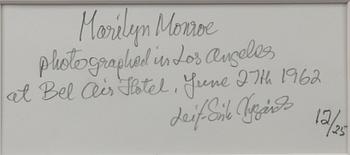 Marilyn Monroe
photographed in Los Angeles
at Bel Air Hotel, June 27th 1962
Leif-Erik Nygårds
12/25